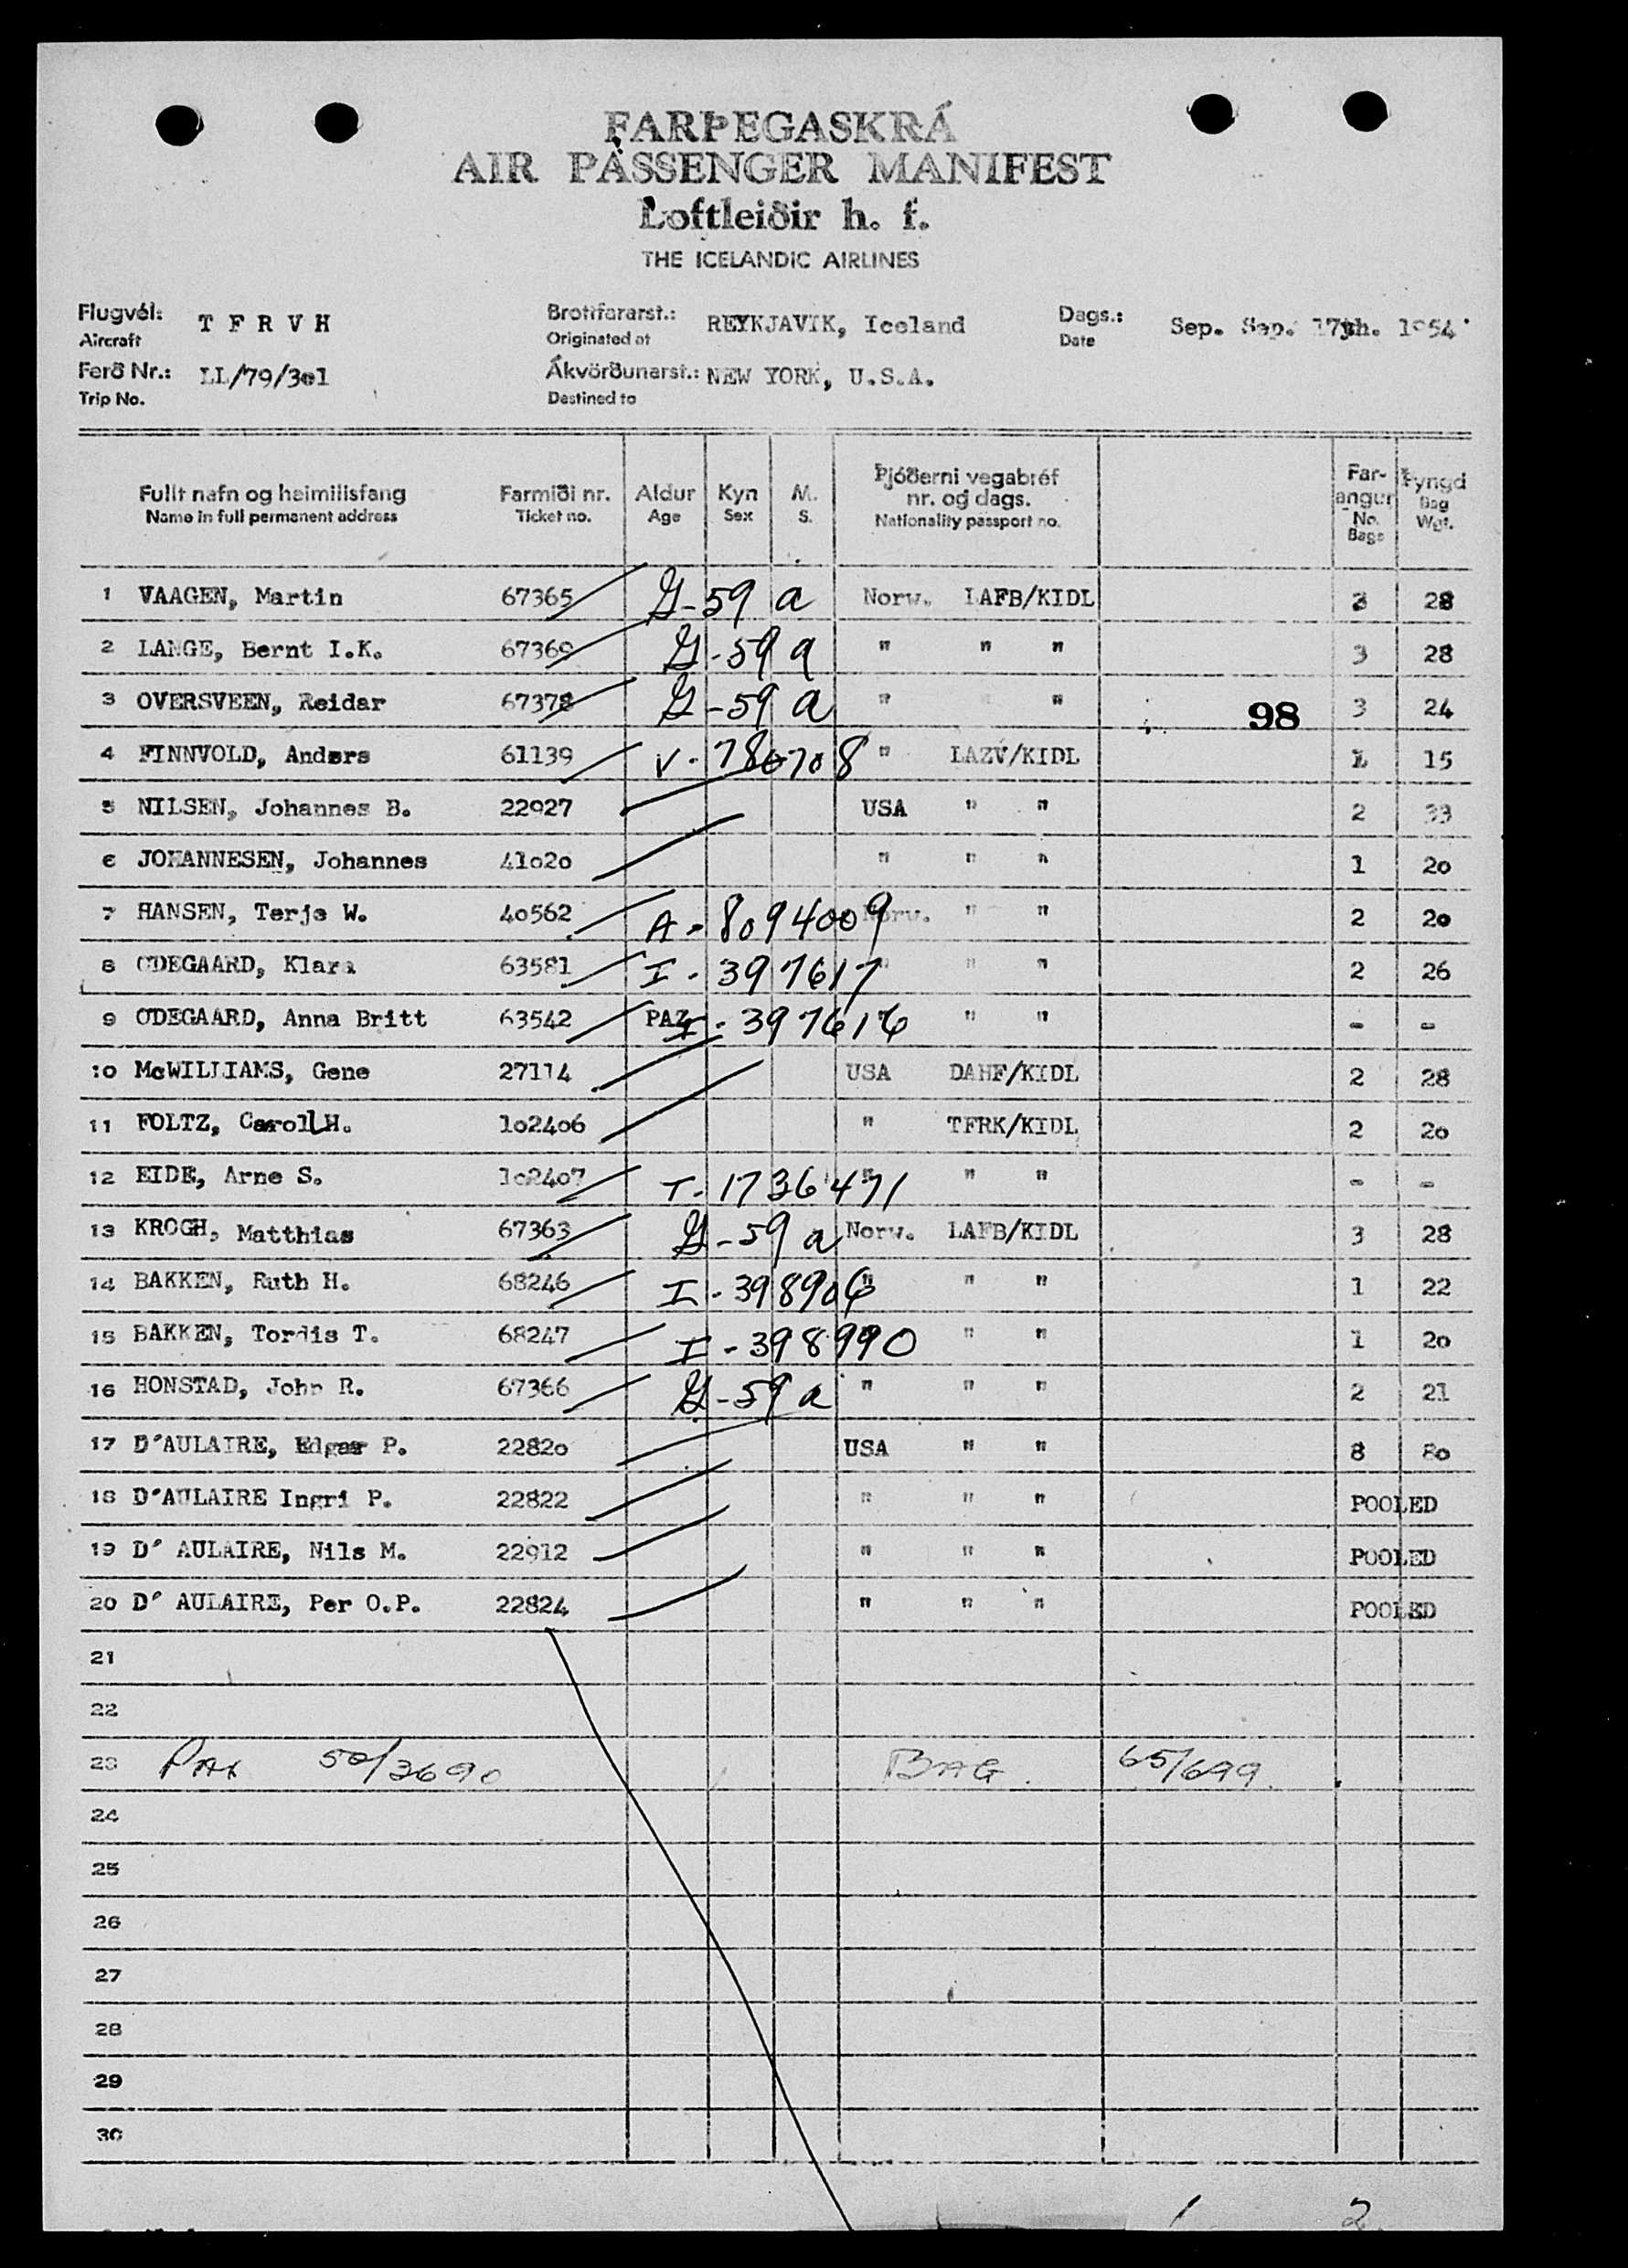 FARÞEGASKRÁ
AIR PASSENGER MANIFEST
Loftleiðir h. f.
THE ICELANDIC AIRLINES
Flugvél: T F R V H Brottfararst.: REYKJAVIK, Iceland Dags.: Sep. Sep. 17th. 1954
Aircraft Originated at Date
Ferð Nr.: LL/79/3o1 Ákvörðunarst.: NEW YORK, U.S.A.
Trip No. Destined to
Fullt nafn og heimilisfang Farmiði nr. Aldur Kyn M. Þjóðerni vegabréf nr. og dags. Far-angur Þyngd
Name in full permanent address Ticket no. Age Sex S. Nationality passport no. No. Bags Bag Wgt.
1 VAAGEN, Martin 67365 G-59 a Norw. LAFB/KIDL 3 28
2 LANGE, Bernt I.K. 67369 G-59 a " " " 3 28
3 OVERSVEEN, Reidar 67378 G-59 a " " 98 3 24
4 FINNVOLD, Anders 61139 V-786708 " LAZV/KIDL 1 15
5 NILSEN, Johannes B. 22927 USA " " 2 33
6 JOHANNESEN, Johannes 41o2o " " " 1 2o
7 HANSEN, Terje W. 4o562 A-8094009 Norw. " " 2 2o
8 ODEGAARD, Klara 63581 I-397617 " " " 2 26
9 ODEGAARD, Anna Britt 63542 PAZ I-397616 " " - -
10 McWILLIAMS, Gene 27114 USA DAHF/KIDL 2 28
11 FOLTZ, Caroll H. 1o24o6 " TFRK/KIDL 2 2o
12 EIDE, Arne S. 1o24o7 T-1736471 " " " - -
13 KROGH, Matthias 67363 G-59 a Norw. LAFB/KIDL 3 28
14 BAKKEN, Ruth H. 68246 I-398906 " " " 1 22
15 BAKKEN, Tordis T. 68247 I-398990 " " 1 2o
16 HONSTAD, John R. 67366 G-59 a " " " 2 21
17 D'AULAIRE, Edgar P. 2282o USA " " 8 8o
18 D'AULAIRE Ingri P. 22822 " " " POOLED
19 D' AULAIRE, Nils M. 22912 " " " POOLED
20 D' AULAIRE, Per O.P. 22824 " " " POOLED
21
22
23 PAX 50/3690 BAG. 65/699.
24
25
26
27
28
29
30
1 2